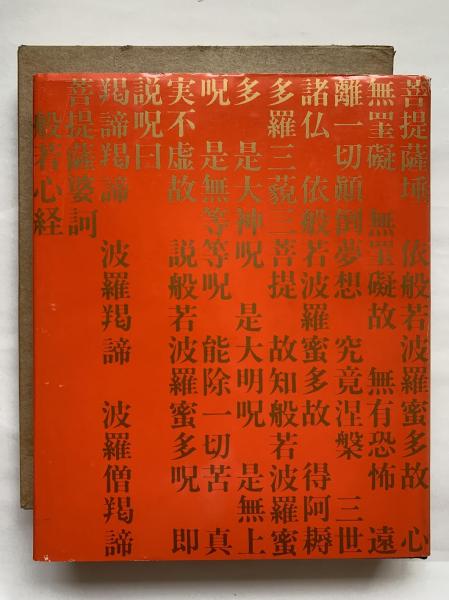 菩提薩埵　依般若波羅蜜多故　心
無罣礙　無罣礙故　無有恐怖　遠
離一切顛倒夢想　究竟涅槃　三世
諸仏　依般若波羅蜜多故　得阿耨
多羅三藐三菩提　故知般若波羅蜜
多　是大神呪　是大明呪　是無上
呪　是無等等呪　能除一切苦　真
実不虚故　説般若波羅蜜多呪　即
説呪曰
羯諦羯諦　波羅羯諦　波羅僧羯諦
菩提薩婆訶
般若心経